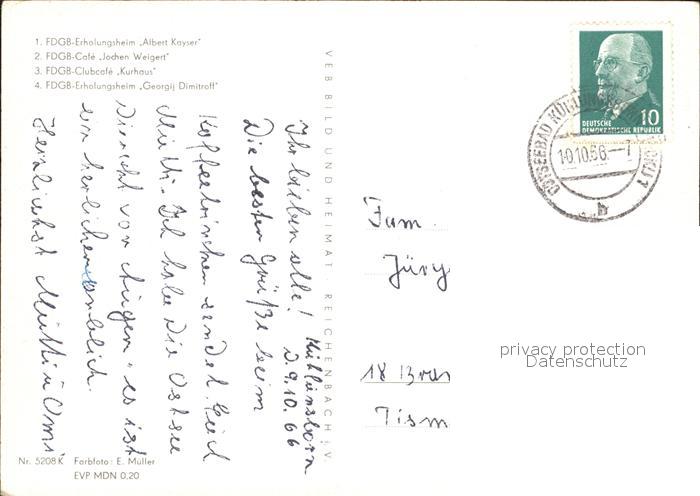 1. FDGB-Erholungsheim „Albert Kayser"
2. FDGB-Café „Jochen Weigert"
3. FDGB-Clubcafé „Kurhaus"
4. FDGB-Erholungsheim „Georgij Dimitroff"
VEB BILD UND HEIMAT REICHENBACH i. V.
Kühlungsborn
D. 9.10.66
Ihr lieben alle!
Die besten Grüße beim
Kaffeetrinken sendet Euch
Mutti. Ich habe die Ostsee
vor Augen, es ist
ein herlicher anblick.
Herzlichst Mutti u Omi
10
DEUTSCHE
DEMOKRATISCHE REPUBLIK
OSTSEEBAD
10.10.66.
b
Fam
Jürg
18
privacy protection
Datenschutz
Nr. 5208 K Farbfoto: E. Müller
EVP MDN 0,20